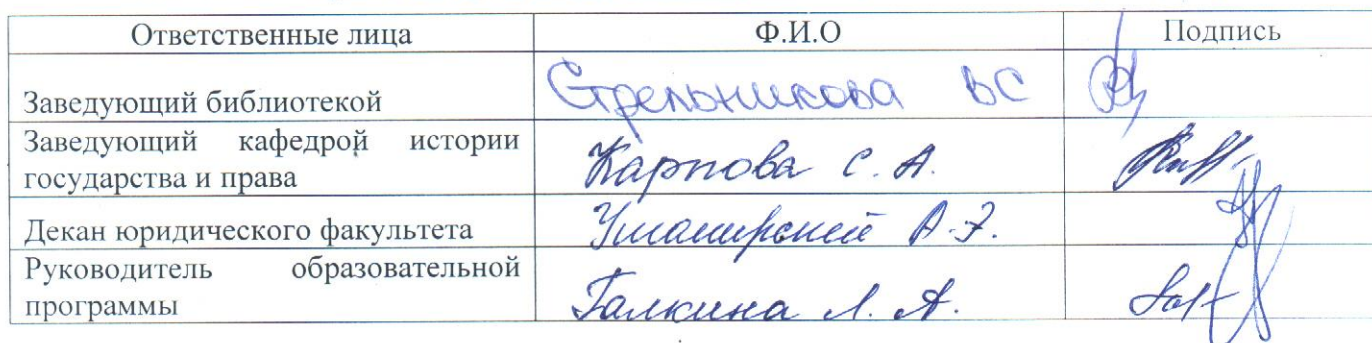 Ответственные лица Ф.И.О Подпись
Заведующий библиотекой Стрельникова ВС
Заведующий кафедрой истории
государства и права Карпова С. А.
Декан юридического факультета А.Э.
Руководитель образовательной
программы Галкина Л. А.